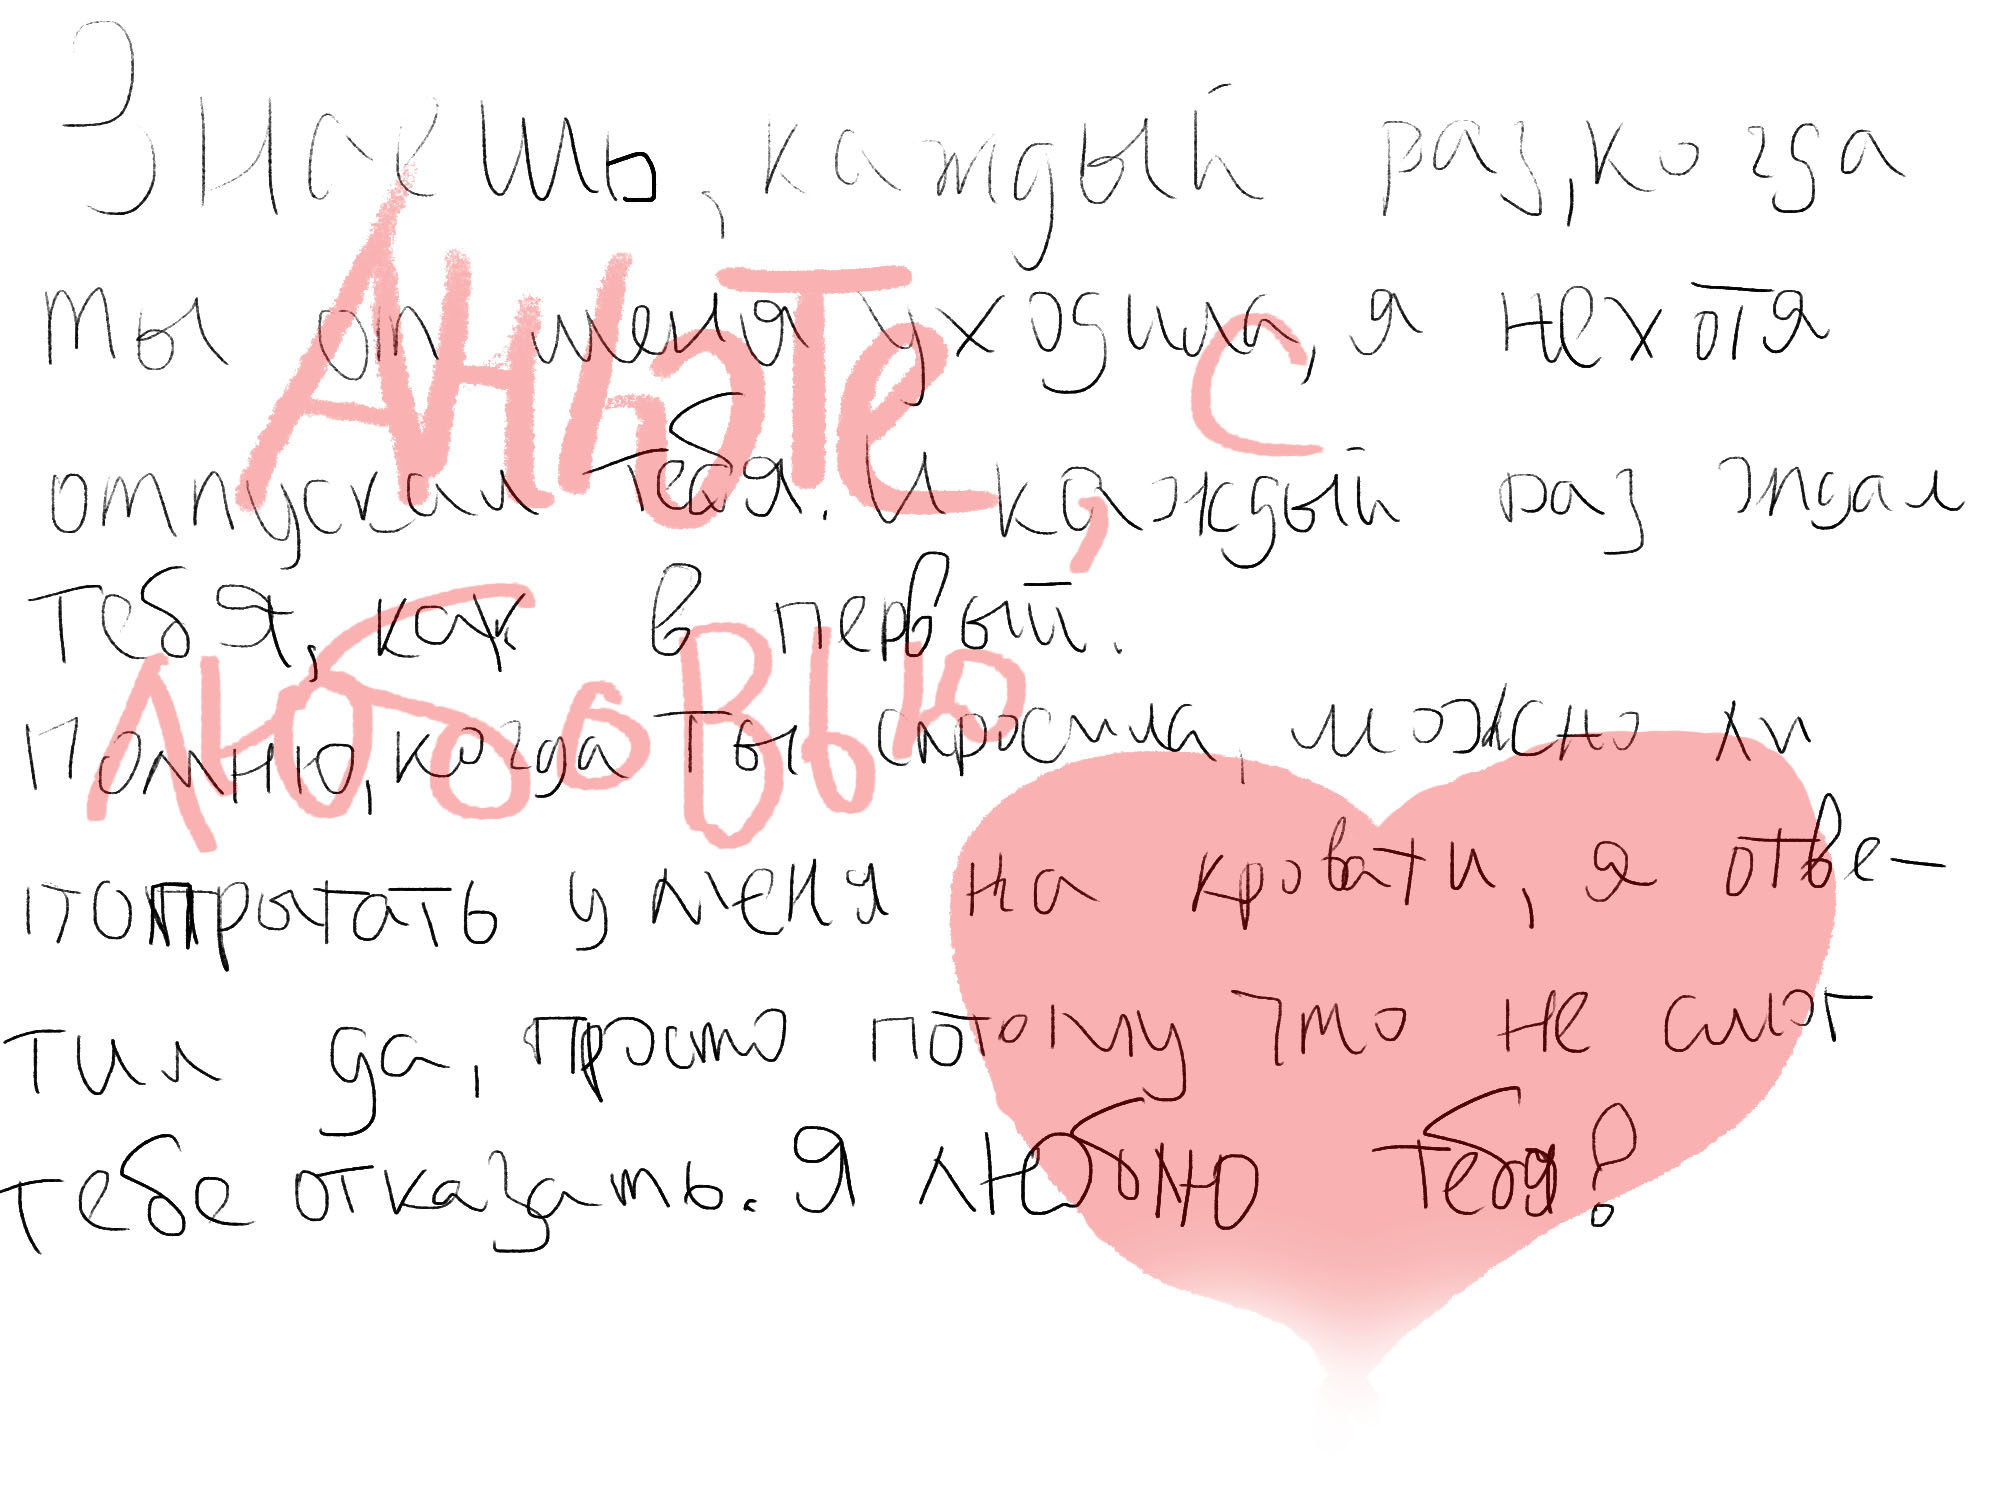 Знаешь, каждый раз, когда
ты от меня уходила, я нехотя
отпускал тебя. И каждый раз ждал
тебя, как в первый.
Помню, когда ты спросила, можно ли
попрытать у меня на кровати, я отве-
тил да, просто потому что не смог
тебе отказать. Я люблю тебя?
Анюте, с
любовью